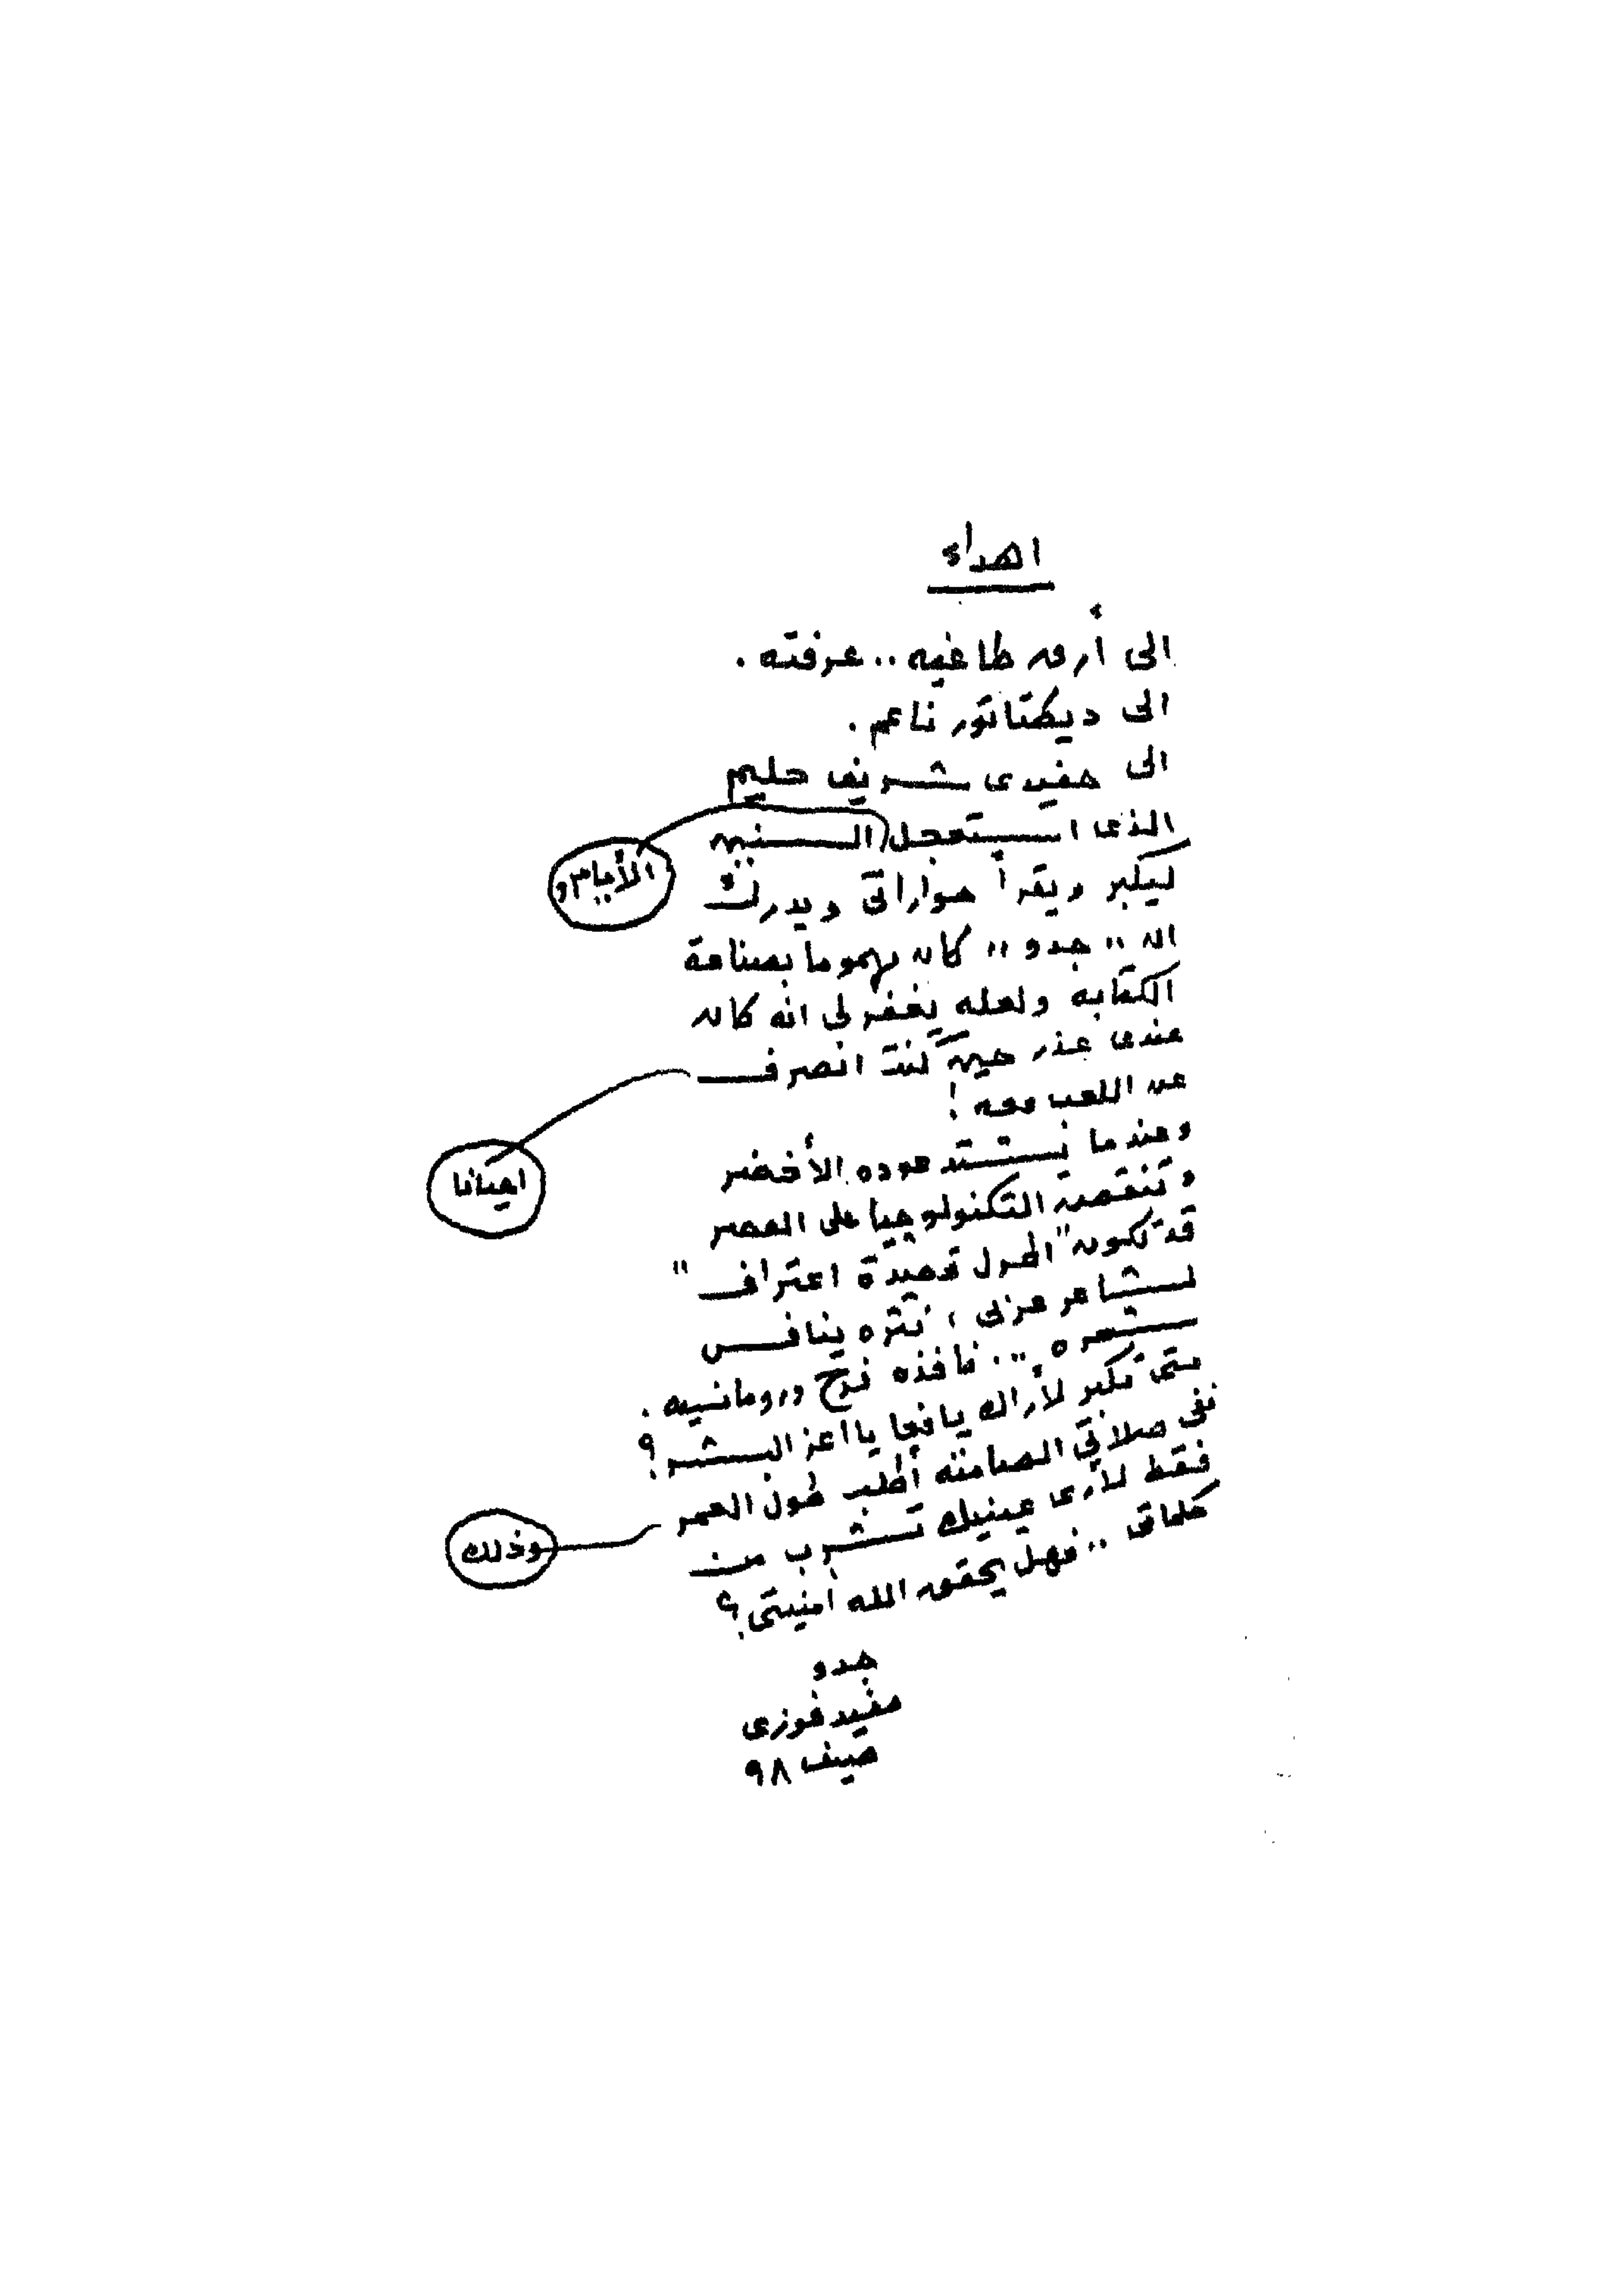 اهداء
الى أرق طاغيه .. عرفته .
الى ديكتاتور ناعم .
الى حفيدى شريف حليم
الذى استعجل السنين
الأيام و
ليكبر ويقرأ حواراتى ويدرك
ان " جدو " كان مهموما بصناعة
الكتابه ولعله يغفر لى انه كان
عندى عذر حين كنت انصرف
احيانا
عن اللعب معه !
وعندما يشتد عوده الأخضر
وتنقض التكنولوجيا على العصر
قد تكون " اطول قصيدة اعتراف "
لشاعر عربى ، نثره ينافس
شعره ، .. نافذه فرح ورومانسيه .
متى تكبر لأراك يافعا يا اعز البشر ؟
ففى صلاتى الصامته أطلب طول العمر
وذلك
فقط لأرى عينيك تشرب من
كلماتى .. فهل يحقق الله امنيتى ؟
جدو
مفيد فوزى
صيف ٩٨